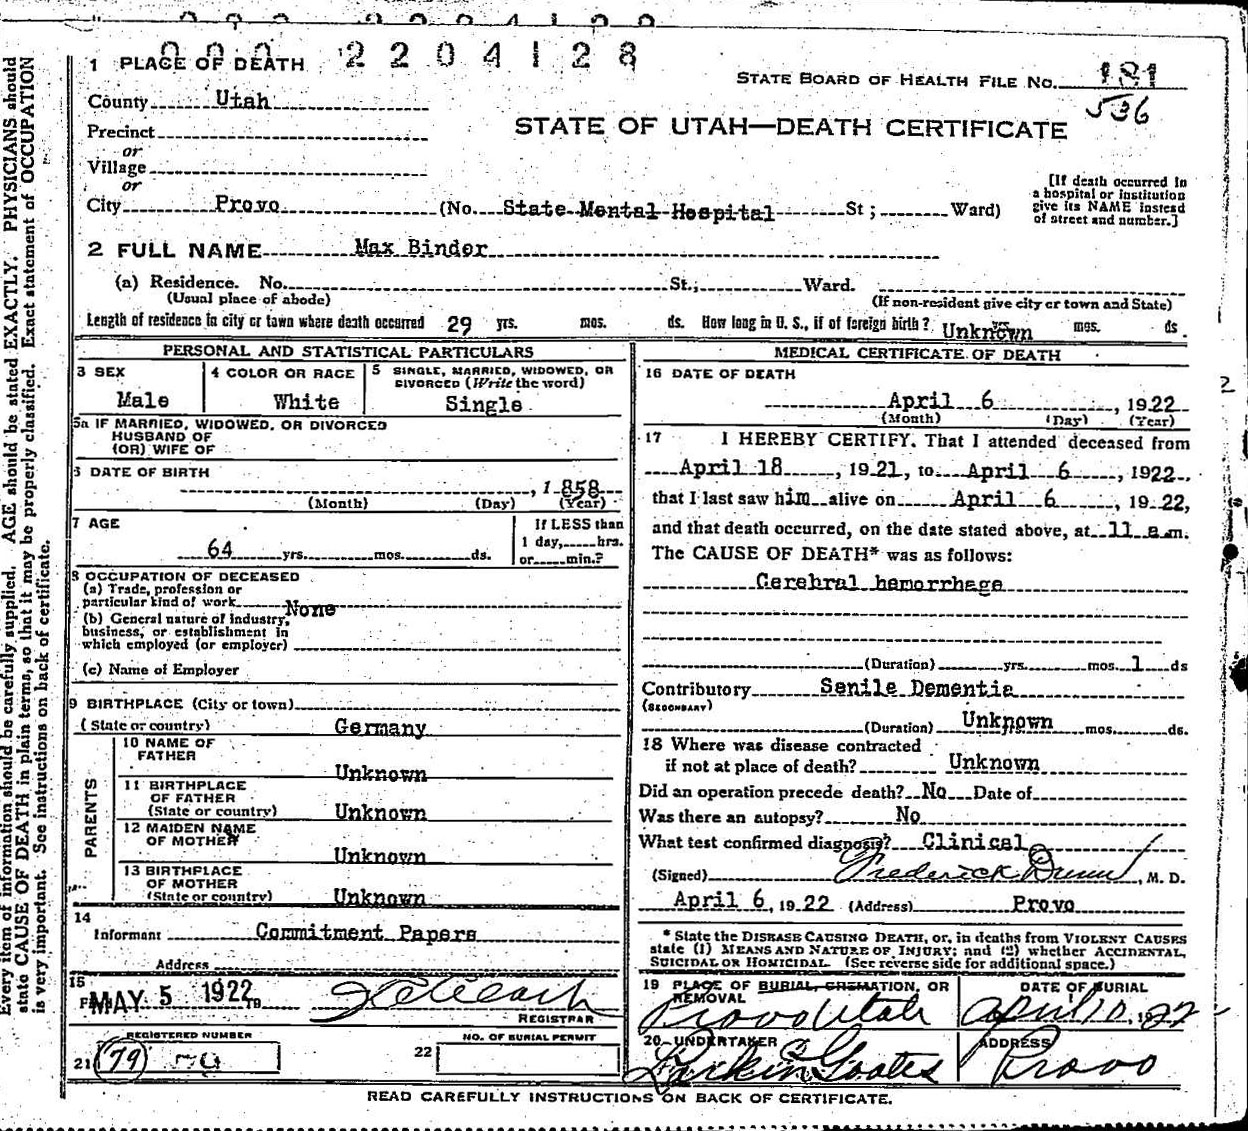 000 2204128
1 PLACE OF DEATH
STATE BOARD OF HEALTH FILE NO. 181
536
County Utah
STATE OF UTAH—DEATH CERTIFICATE
Precinct
or
Village
or
City Provo (No. State Mental Hospital St; Ward)
[If death occurred in a hospital or institution give its NAME instead of street and number.]
2 FULL NAME Max Binder
(a) Residence. No. St.; Ward.
(Usual place of abode) (If non-resident give city or town and State)
Length of residence in city or town where death occurred 29 yrs. mos. ds. How long in U. S., if of foreign birth? Unknown mos. ds.
PERSONAL AND STATISTICAL PARTICULARS
3 SEX
Male
4 COLOR OR RACE
White
5 SINGLE, MARRIED, WIDOWED, OR
DIVORCED (Write the word)
Single
5a IF MARRIED, WIDOWED, OR DIVORCED
HUSBAND OF
(OR) WIFE OF
6 DATE OF BIRTH
, 1858
(Month) (Day) (Year)
7 AGE
64 yrs. mos. ds.
If LESS than
1 day, hrs.
or min.?
8 OCCUPATION OF DECEASED
(a) Trade, profession or
particular kind of work None
(b) General nature of industry,
business, or establishment in
which employed (or employer)
(c) Name of Employer
9 BIRTHPLACE (City or town)
(State or country) Germany
PARENTS
10 NAME OF
FATHER
Unknown
11 BIRTHPLACE
OF FATHER
(State or country) Unknown
12 MAIDEN NAME
OF MOTHER
Unknown
13 BIRTHPLACE
OF MOTHER
(State or country) Unknown
14
Informant Commitment Papers
Address
15
MAY 5 1922
REGISTRAR
REGISTERED NUMBER
21 79
NO. OF BURIAL PERMIT
22
MEDICAL CERTIFICATE OF DEATH
16 DATE OF DEATH
April 6, 1922
(Month) (Day) (Year)
17 I HEREBY CERTIFY, That I attended deceased from
April 18, 1921, to April 6, 1922,
that I last saw him alive on April 6, 1922,
and that death occurred, on the date stated above, at 11 a.m.
The CAUSE OF DEATH* was as follows:
Cerebral hemorrhage
(Duration) yrs. mos. 1 ds
Contributory Senile Dementia
(SECONDARY)
(Duration) Unknown mos. ds.
18 Where was disease contracted
if not at place of death? Unknown
Did an operation precede death? No Date of
Was there an autopsy? No
What test confirmed diagnosis? Clinical
(Signed) Frederick Dunn, M. D.
April 6, 1922 (Address) Provo
* State the DISEASE CAUSING DEATH, or, in deaths from VIOLENT CAUSES
state (1) MEANS AND NATURE OF INJURY; and (2) whether ACCIDENTAL,
SUICIDAL OR HOMICIDAL. (See reverse side for additional space.)
19 PLACE OF BURIAL, CREMATION, OR
REMOVAL
Provo Utah
DATE OF BURIAL
April 10, 1922
20 UNDERTAKER
Larkin & Goates
ADDRESS
Provo
READ CAREFULLY INSTRUCTIONS ON BACK OF CERTIFICATE.
Every item of information should be carefully supplied. AGE should be stated EXACTLY. PHYSICIANS should
state CAUSE OF DEATH in plain terms, so that it may be properly classified. Exact statement of OCCUPATION
is very important. See instructions on back of certificate.